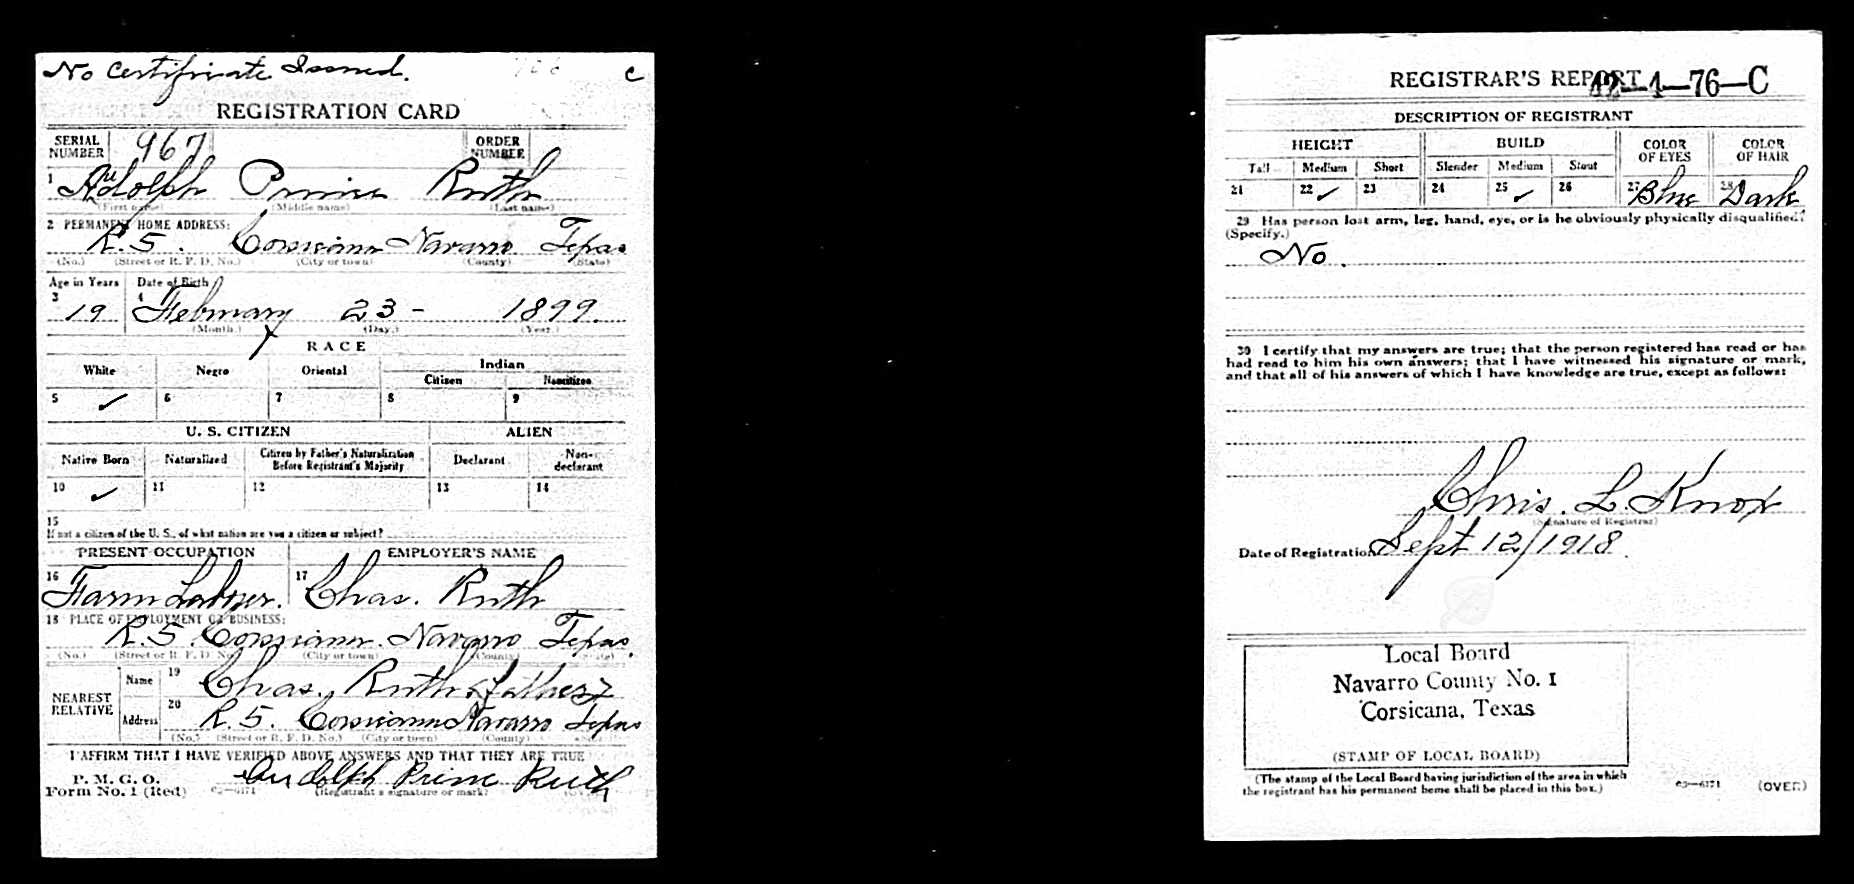 No Certificate Issued. C
REGISTRATION CARD
SERIAL NUMBER 967 ORDER NUMBER
1 Adolph Prince Ruth
(First name) (Middle name) (Last name)
2 PERMANENT HOME ADDRESS:
R.5. Corsicana Navarro Texas
(No.) (Street or R. F. D. No.) (City or town) (County) (State)
Age in Years Date of Birth
3 19 4 February 23 - 1899.
(Month.) (Day.) (Year.)
RACE
White Negro Oriental Indian
Citizen Noncitizen
5 ✓ 6 7 8 9
U. S. CITIZEN ALIEN
Native Born Naturalized Citizen by Father's Naturalization Before Registrant's Majority Declarant Non-declarant
10 ✓ 11 12 13 14
15
If not a citizen of the U. S., of what nation are you a citizen or subject?
PRESENT OCCUPATION EMPLOYER'S NAME
16 Farm Laborer. 17 Chas. Ruth
18 PLACE OF EMPLOYMENT OR BUSINESS:
R.5 Corsicana. Navarro Texas.
(No.) (Street or R. F. D. No.) (City or town) (County) (State)
NEAREST RELATIVE
Name 19 Chas. Ruth (Father)
Address 20 R.5. Corsicana Navarro Texas
(No.) (Street or R. F. D. No.) (City or town) (County) (State)
I AFFIRM THAT I HAVE VERIFIED ABOVE ANSWERS AND THAT THEY ARE TRUE
P. M. G. O.
Form No. 1 (Red) 03—6171 Audolph Prince Ruth
(Registrant's signature or mark) (OVER)
REGISTRAR'S REPORT 42—1—76—C
DESCRIPTION OF REGISTRANT
HEIGHT BUILD COLOR OF EYES COLOR OF HAIR
Tall Medium Short Slender Medium Stout
21 22 ✓ 23 24 25 ✓ 26 27 Blue 28 Dark
29 Has person lost arm, leg, hand, eye, or is he obviously physically disqualified?
(Specify.)
No.
30 I certify that my answers are true; that the person registered has read or has
had read to him his own answers; that I have witnessed his signature or mark,
and that all of his answers of which I have knowledge are true, except as follows:
Chris. L. Knox
(Signature of Registrar)
Date of Registration Sept 12/1918.
Local Board
Navarro County No. 1
Corsicana, Texas
(STAMP OF LOCAL BOARD)
(The stamp of the Local Board having jurisdiction of the area in which
the registrant has his permanent home shall be placed in this box.)
03—6171 (OVER)